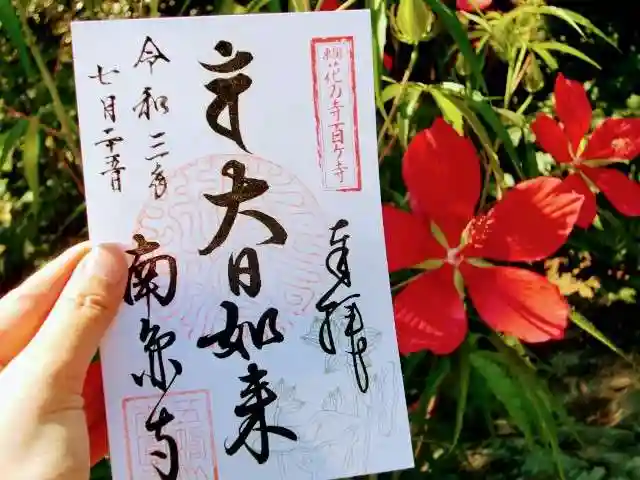 東国花の寺百ヶ寺
奉拝
大日如来
令和三年
七月二十五日
南 寺